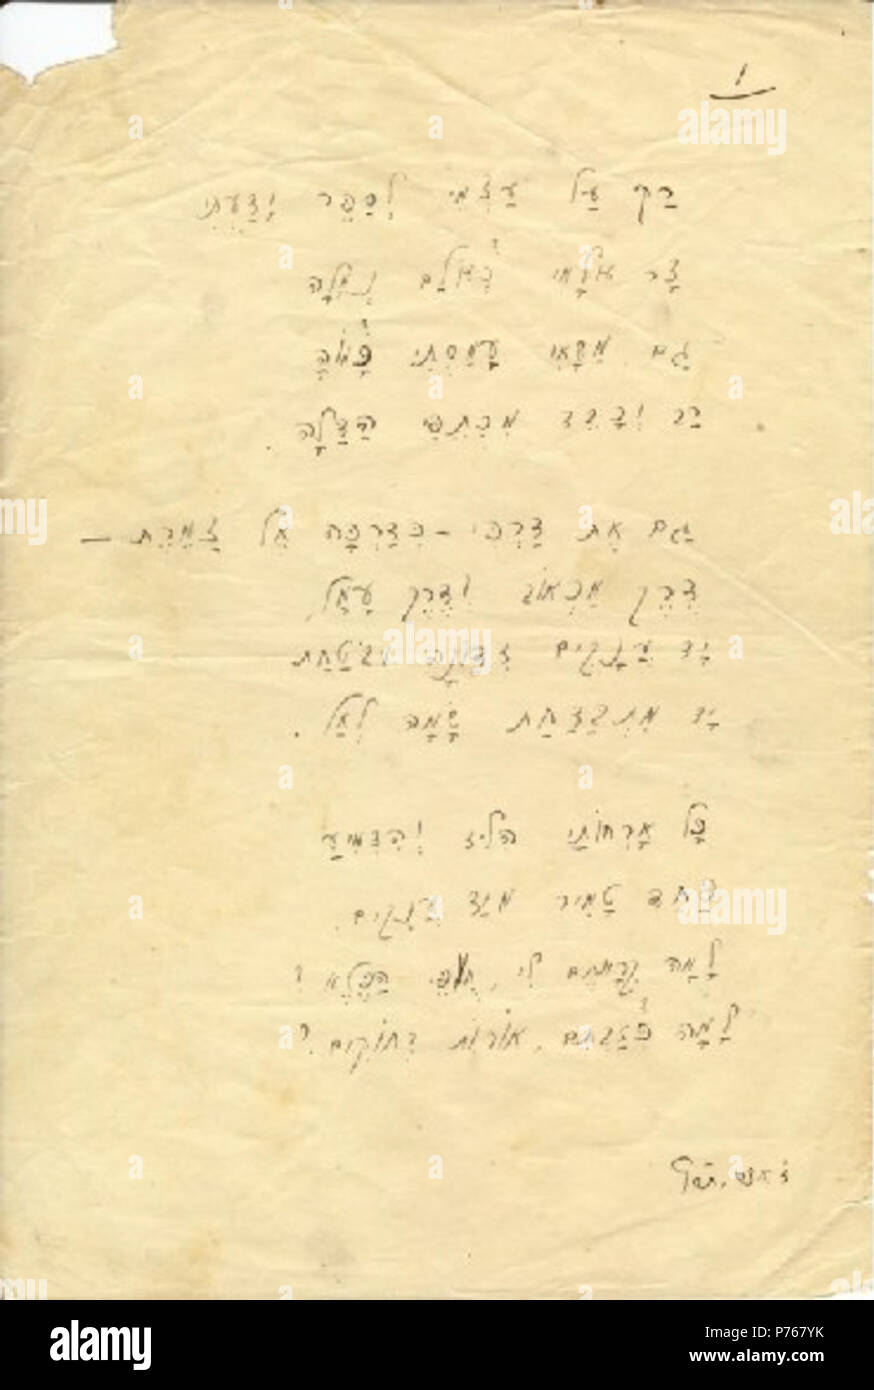 1
רַק עַל עַצְמִי לְסַפֵּר יָדַעְתִּי
צַר עוֹלָמִי כְּעוֹלַם נְמָלָה
גַּם מַשָּׂאִי עָמַסְתִּי כָּמוֹהָ
רַב וְכָבֵד מִכְּתֵפִי הַדַּלָּה.
גַּם אֶת דַּרְכִּי – כְּדַרְכָּהּ אֶל צַמֶּרֶת –
דֶּרֶךְ מַכְאוֹב וְדֶרֶךְ עָמָל,
יַד עֲנָקִים זְדוֹנָה וּבוֹטַחַת
יַד מִתְבַּדַּחַת שָׂמָה לְאַל.
כָּל אָרְחוֹתַי הִלִּיז וְהִדְמִיעַ
פַּחַד טָמִיר מִיַּד עֲנָקִים.
לָמָּה קְרָאתֶם לִי, חוֹפֵי הַפֶּלֶא?
לָמָּה כְּזַבְתֶּם, אוֹרוֹת רְחוֹקִים?
a alamy
alamy
Image ID: P767YK
www.alamy.com